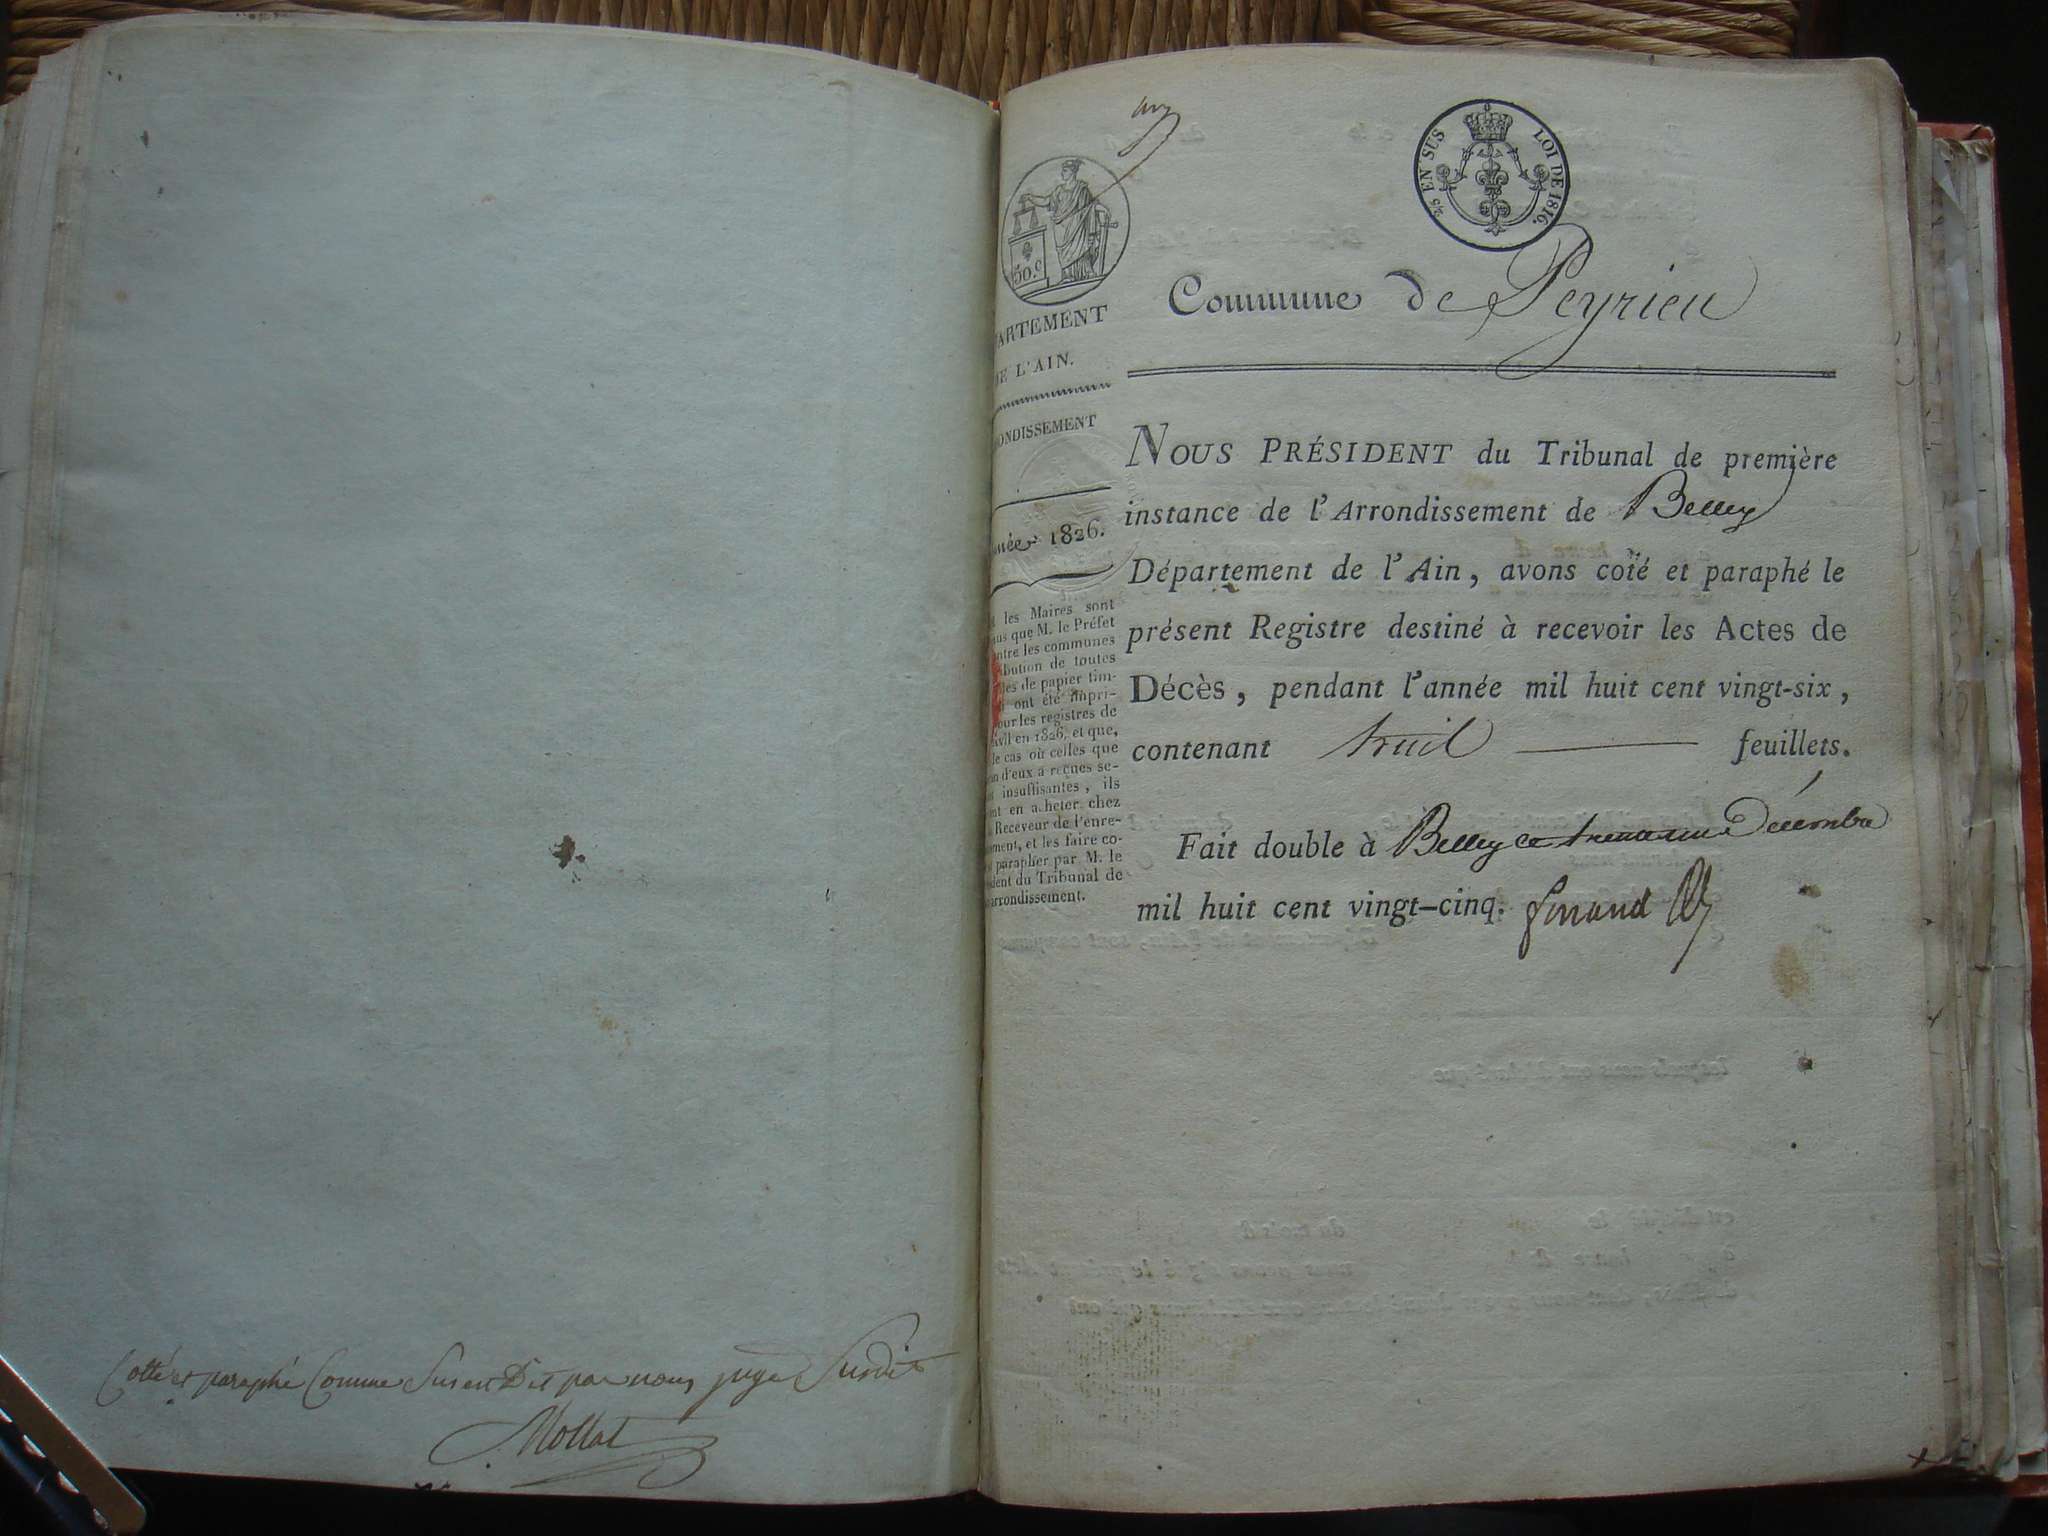 Cotté et paraphé Comme Sus est Dit par nous juge Susdit
Mollat
2/5 EN SUS LOI DE 1816.
50.c
ARTEMENT
E L'AIN.
ONDISSEMENT
née 1826.
les Maires sont
us que M. le Préfet
ntre les communes
ibution de toutes
les de papier tim-
ont été impri-
our les registres de
ivil en 1826, et que,
le cas où celles que
n d'eux a reçues se-
insuffisantes, ils
nt en acheter chez
Receveur de l'enre-
ment, et les faire co-
parapher par M. le
ident du Tribunal de
arrondissement.
Commune de Peyrieu
NOUS PRÉSIDENT du Tribunal de première
instance de l'Arrondissement de Belley
Département de l'Ain, avons coté et paraphé le
présent Registre destiné à recevoir les Actes de
Décès, pendant l'année mil huit cent vingt-six,
contenant feuillets.
Fait double à Belley ce trente un Décembre
mil huit cent vingt-cinq.